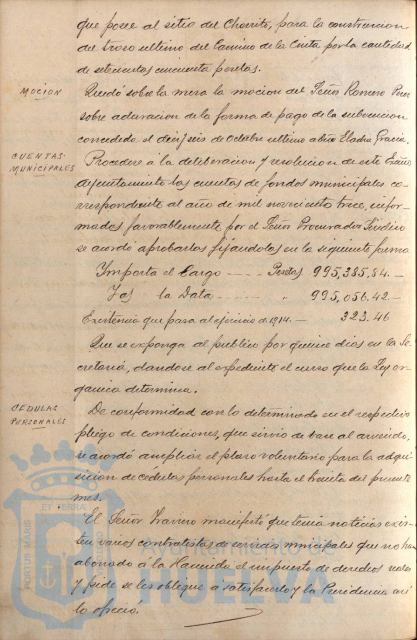 que posee al sitio del Chorrito, para la construccion
del trozo ultimo del Camino de la Cinta por la cantidad
de setecientas cincuenta pesetas.
MOCION
Quedó sobre la mesa la mocion del Señor Romero
sobre aclaracion de la forma de pago de la subvencion
concedida el dieciseis de Octubre ultimo a Eladia Gracia.
CUENTAS MUNICIPALES
Procedere á la deliberacion y resolucion de este Excmo
Ayuntamiento las cuentas de fondos municipales co-
rrespondiente al año de mil novecientos trece, infor-
madas favorablemente por el Señor Procurador Sindico
se acordó aprobarlas fijándolas en la siguiente forma
Importa el Cargo ---- Pesetas 995,385,84.-
la Data ---- " 995,056.42.-
Existencia que pasa al ejercicio de 1914.- 323.46
Que se exponga al publico por quince dias en la Se-
cretaría, dandose al expediente el curso que la Ley or-
ganica determina.
CEDULAS PERSONALES
De conformidad con lo determinado en el respectivo
pliego de condiciones, que sirvio de base al arriendo,
se acordó ampliar el plazo voluntario para la adqui-
sicion de cédulas personales hasta el treinta del presente
mes.
El Señor manifestó que tenia noticias exis-
ten varios contratistas de municipales que no han
abonado á la Hacienda el impuesto de derechos reales
y pide se les obligue á satisfacerlo y la Presidencia así
lo ofreció.
PORTUS MARIS
ET TERRAE
Ayuntamiento de
HUELVA